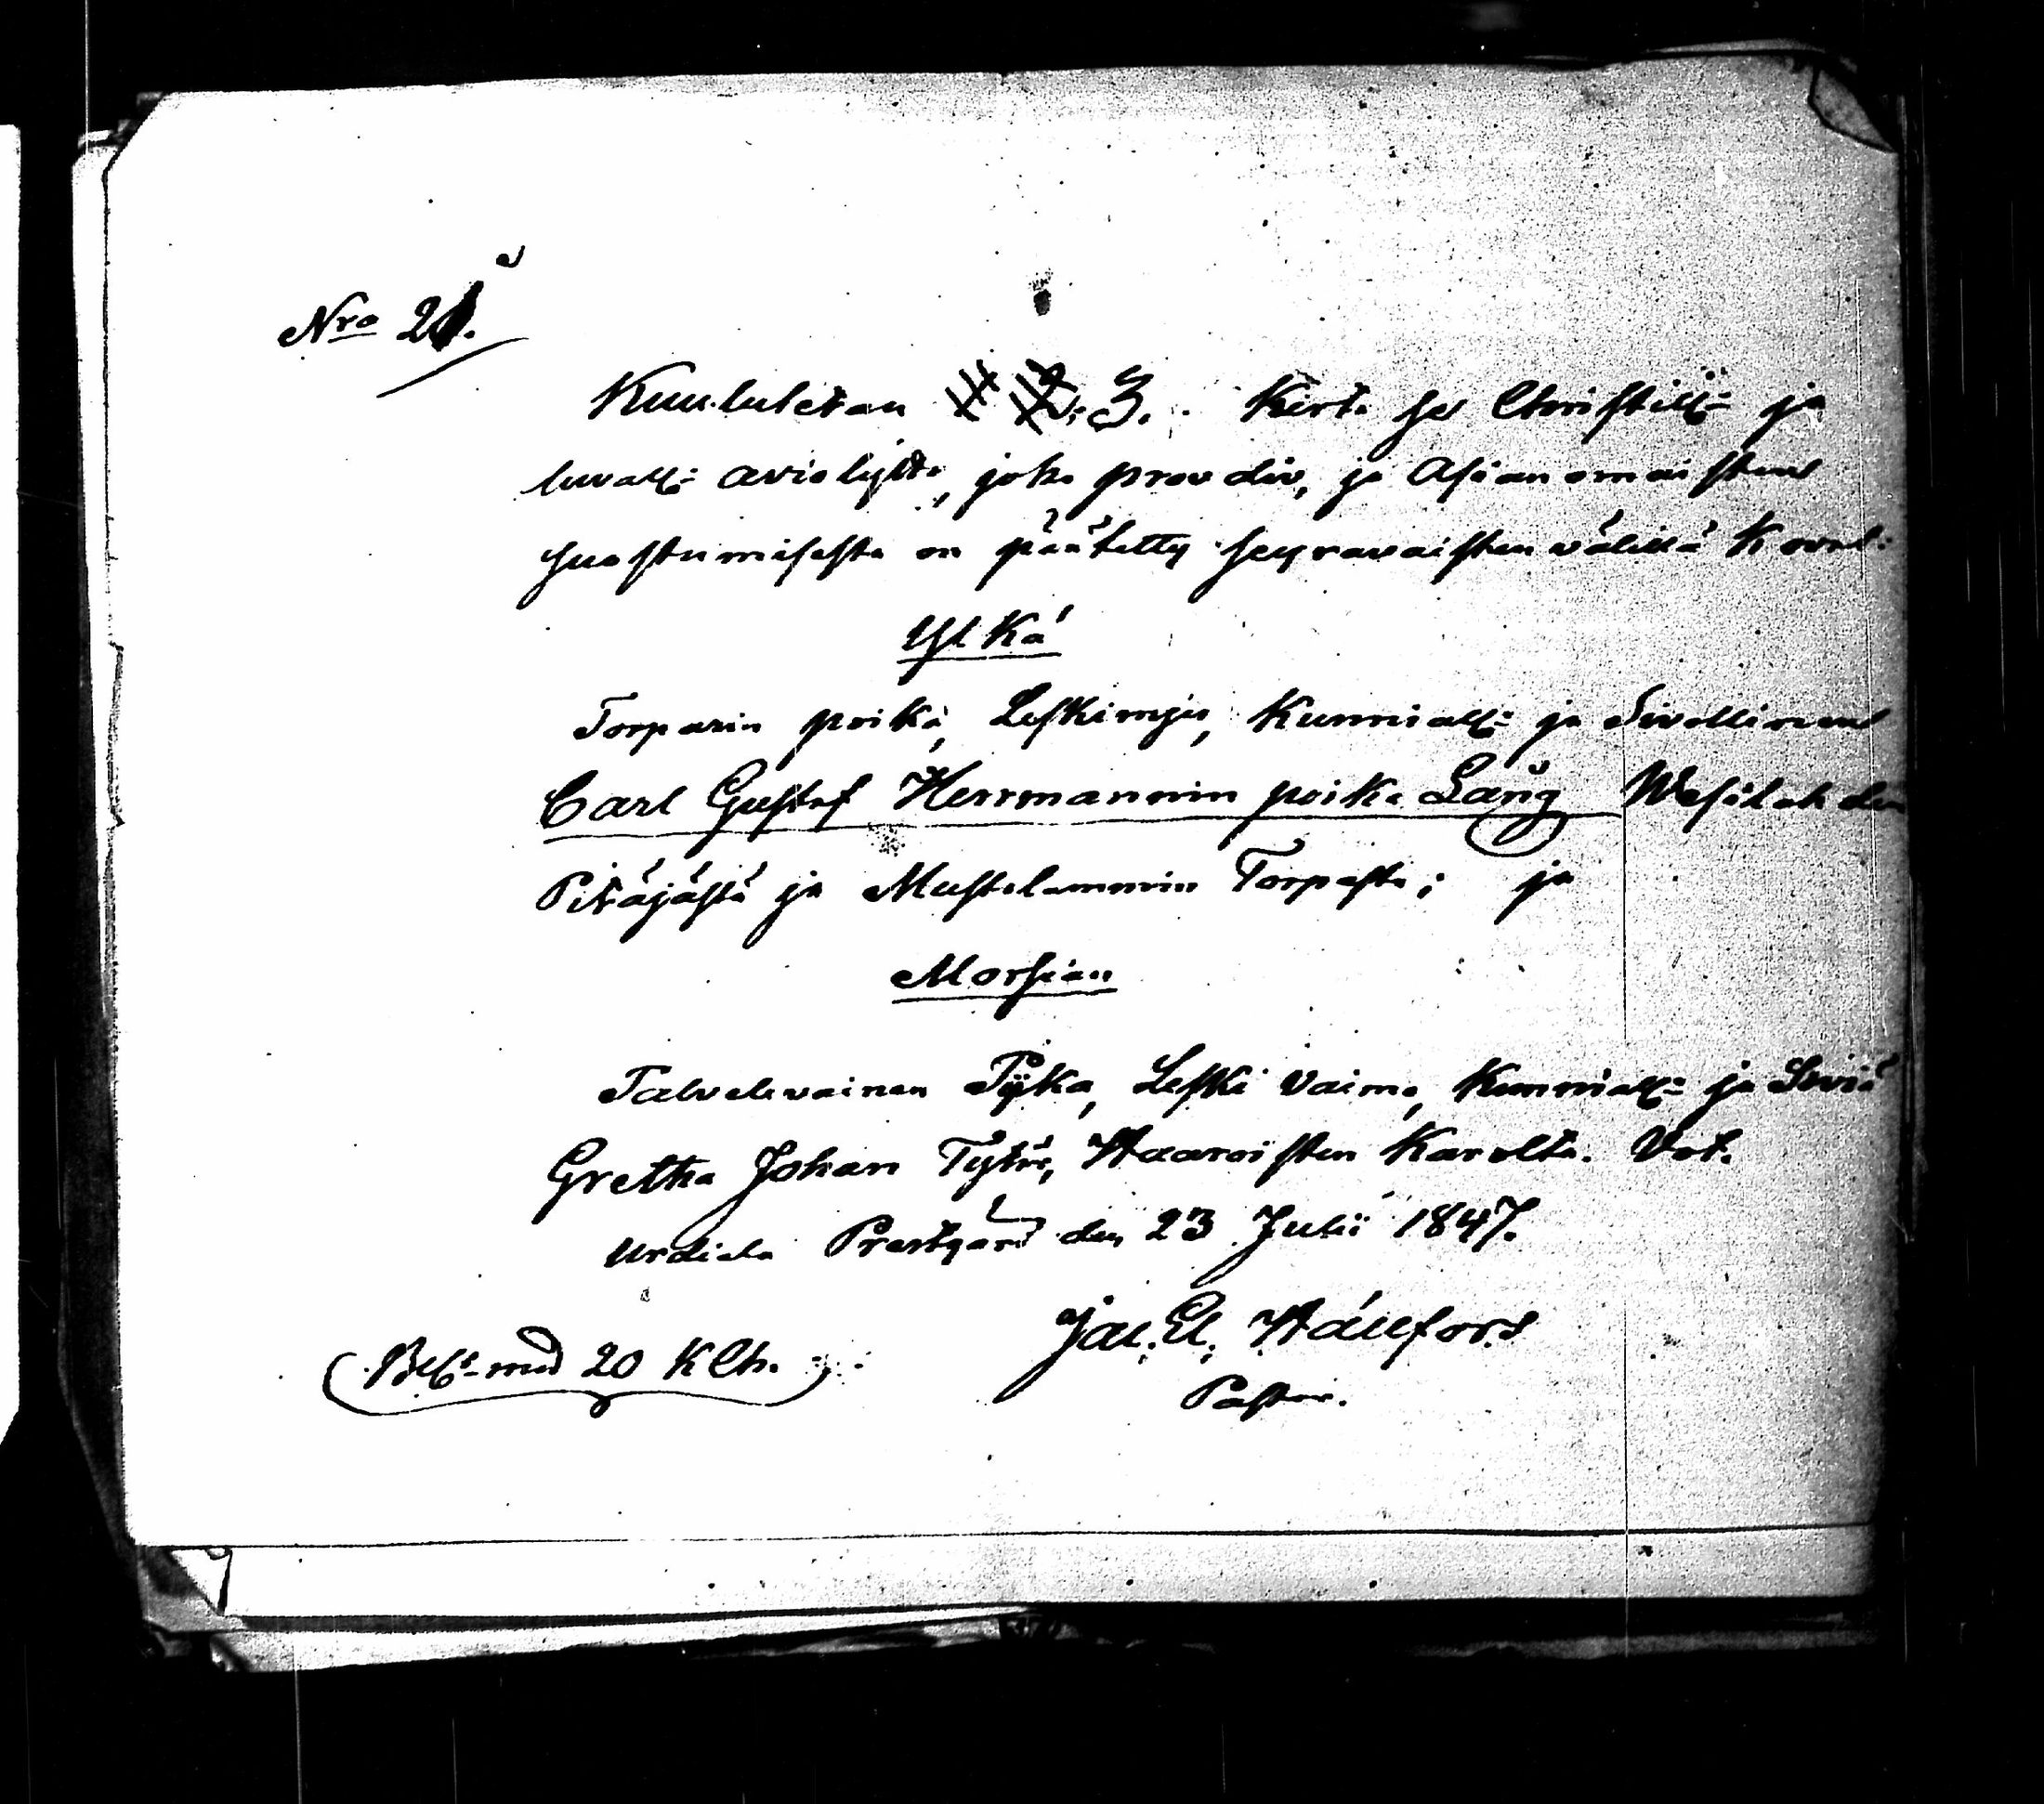 Nro 21.
Kuululetan 3. Kert. se Christill: ja
luvall: aviolijtto, joka provdiv, ja Asianomaisten
suostumisesta on päätetty seuravaisten välillä
Ylkä
Torparin poika, Leskimjes, Kunniall: ja Sivollinen
Carl Gustaf Herrmannin poika Lång Wesilahden
Pitäjästä ja Mustalammin Torpasta; ja
Morsian
Palvelevainen Pijka, Leski vaimo, Kunniall: ja Siviä
Gretha Johan Tytär, Haaroisten Karolta. Vot.
Urdiala Prestgård den 23 Julii 1847.
Jac. El. Hällfors
Pastor.
med 20 K